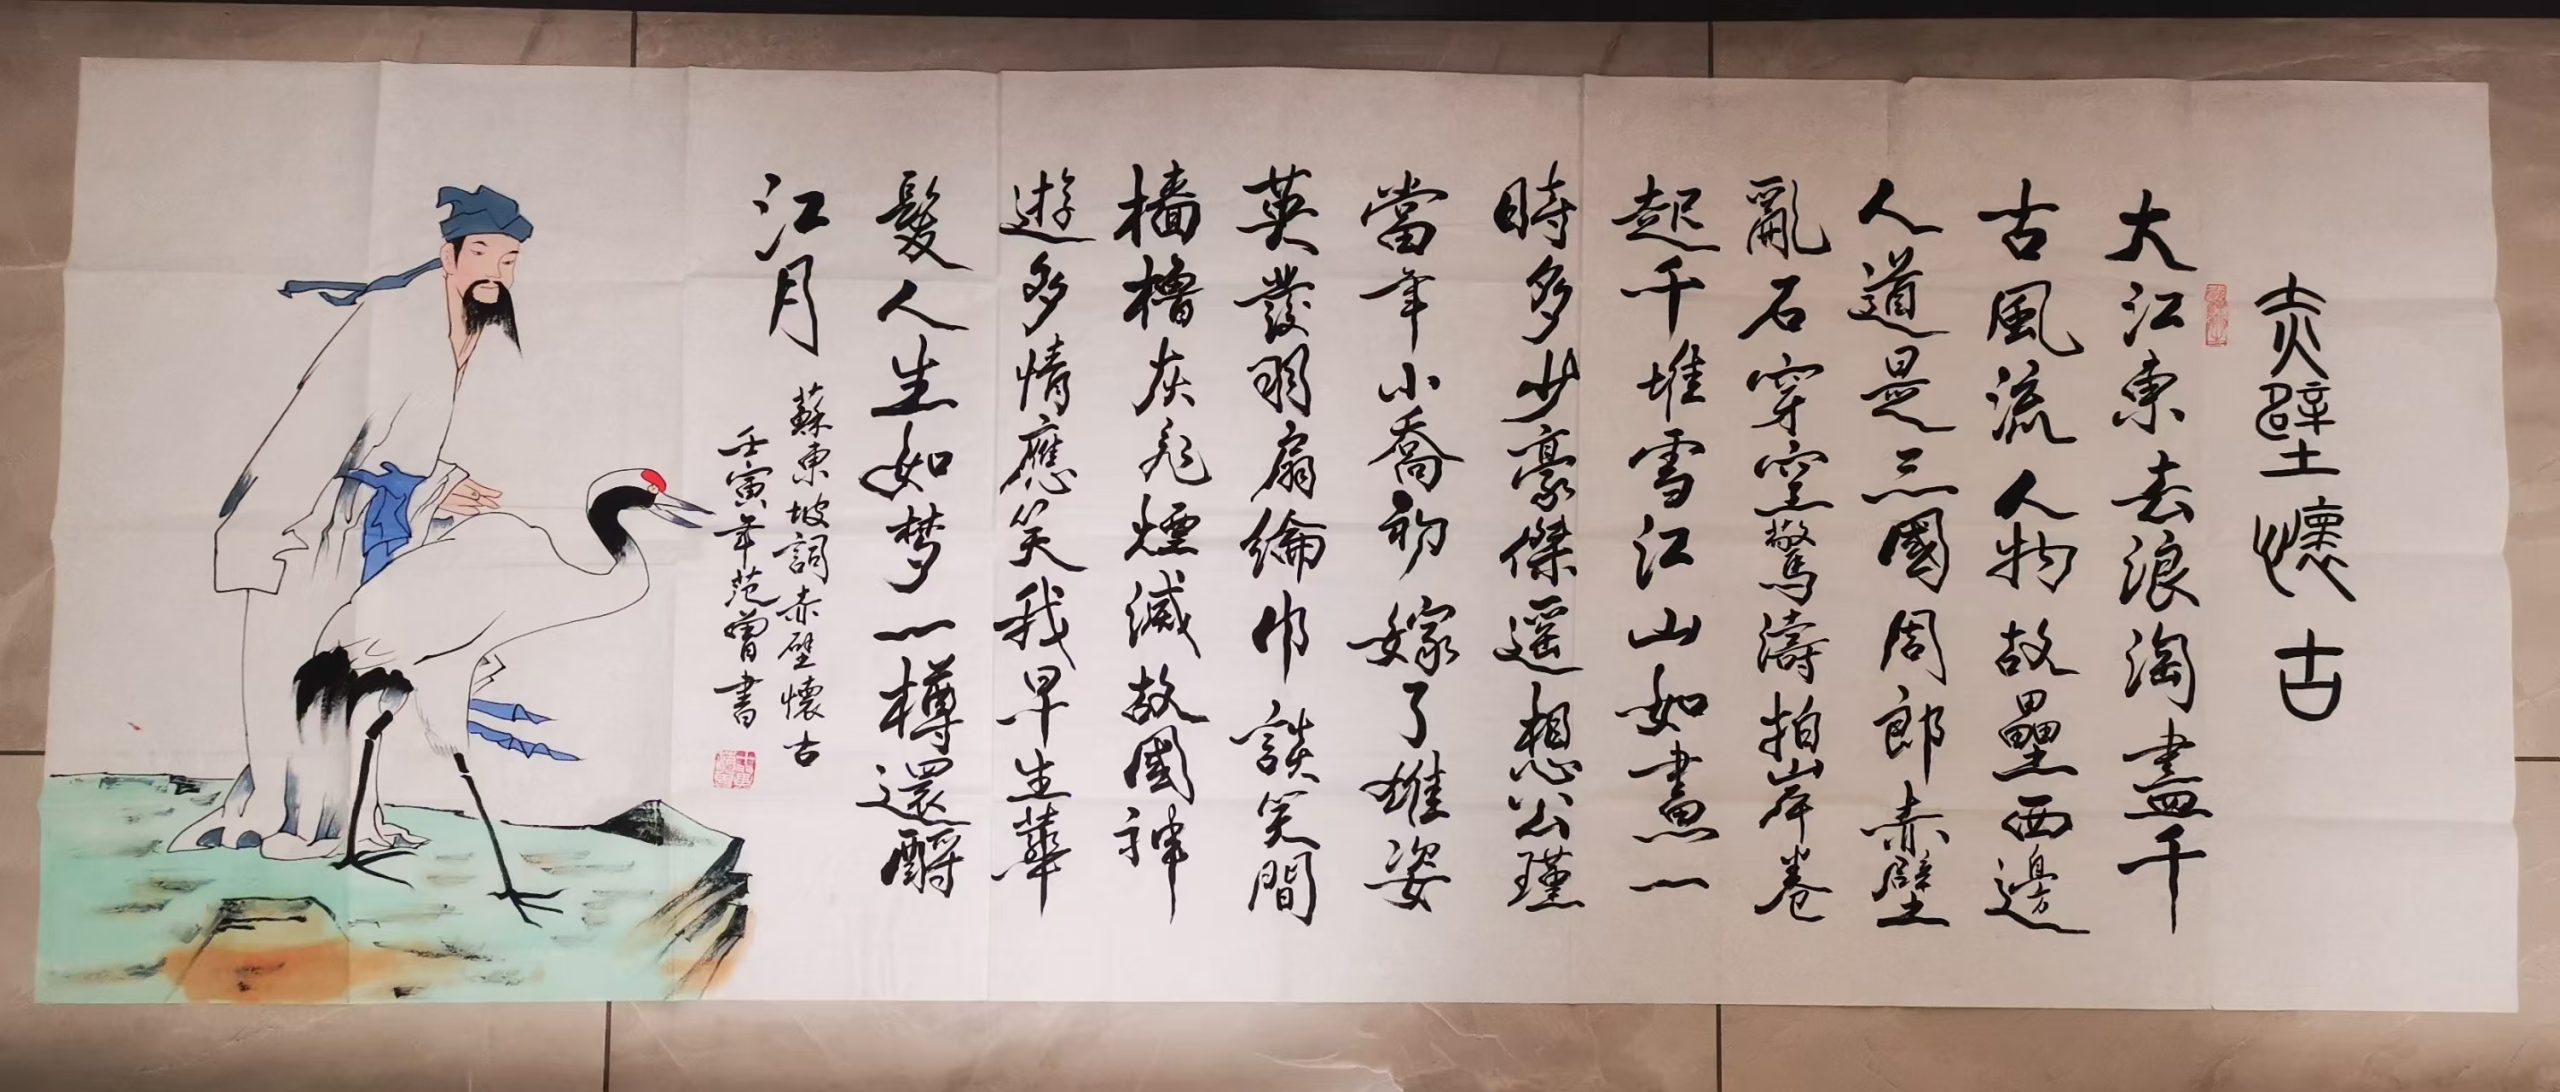 赤壁懷古
大江東去浪淘盡千
古風流人物故壘西邊
人道是三國周郎赤壁
亂石穿空驚濤拍岸卷
起千堆雪江山如畫一
時多少豪傑遥想公瑾
當年小喬初嫁了雄姿
英發羽扇綸巾談笑間
檣櫓灰飛煙滅故國神
遊多情應笑我早生華
髮人生如梦一樽還酹
江月
蘇東坡詞赤壁懷古
壬寅年范曾書